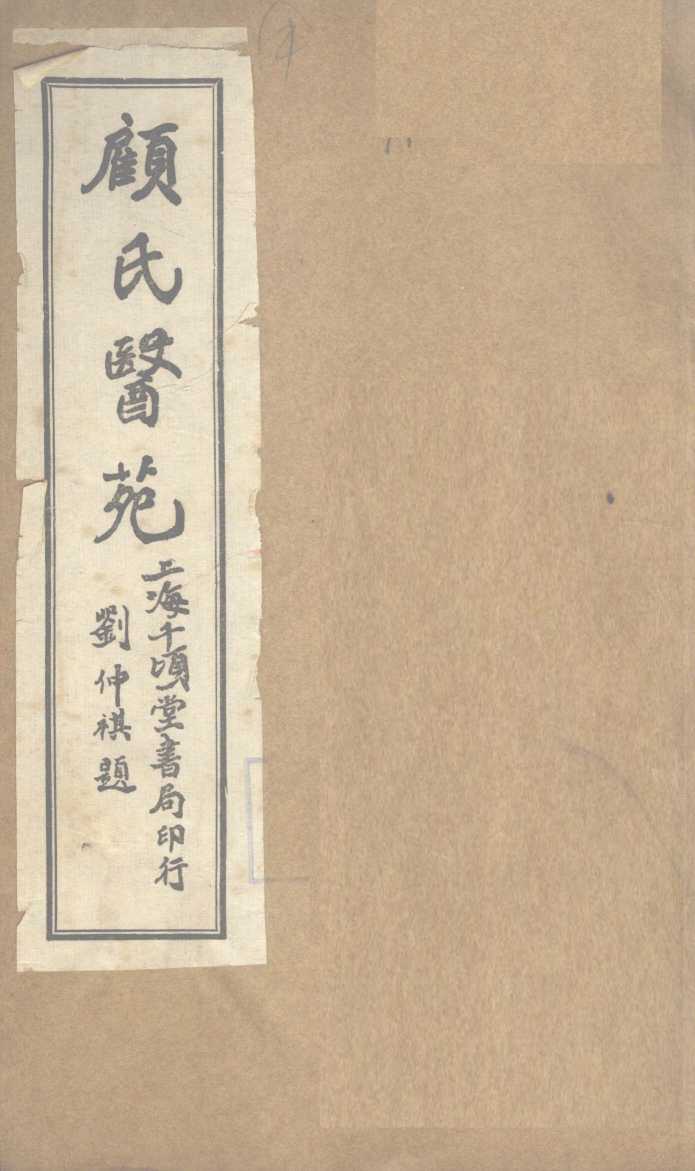 顧氏醫苑
上海千頃堂書局印行
劉仲祺題